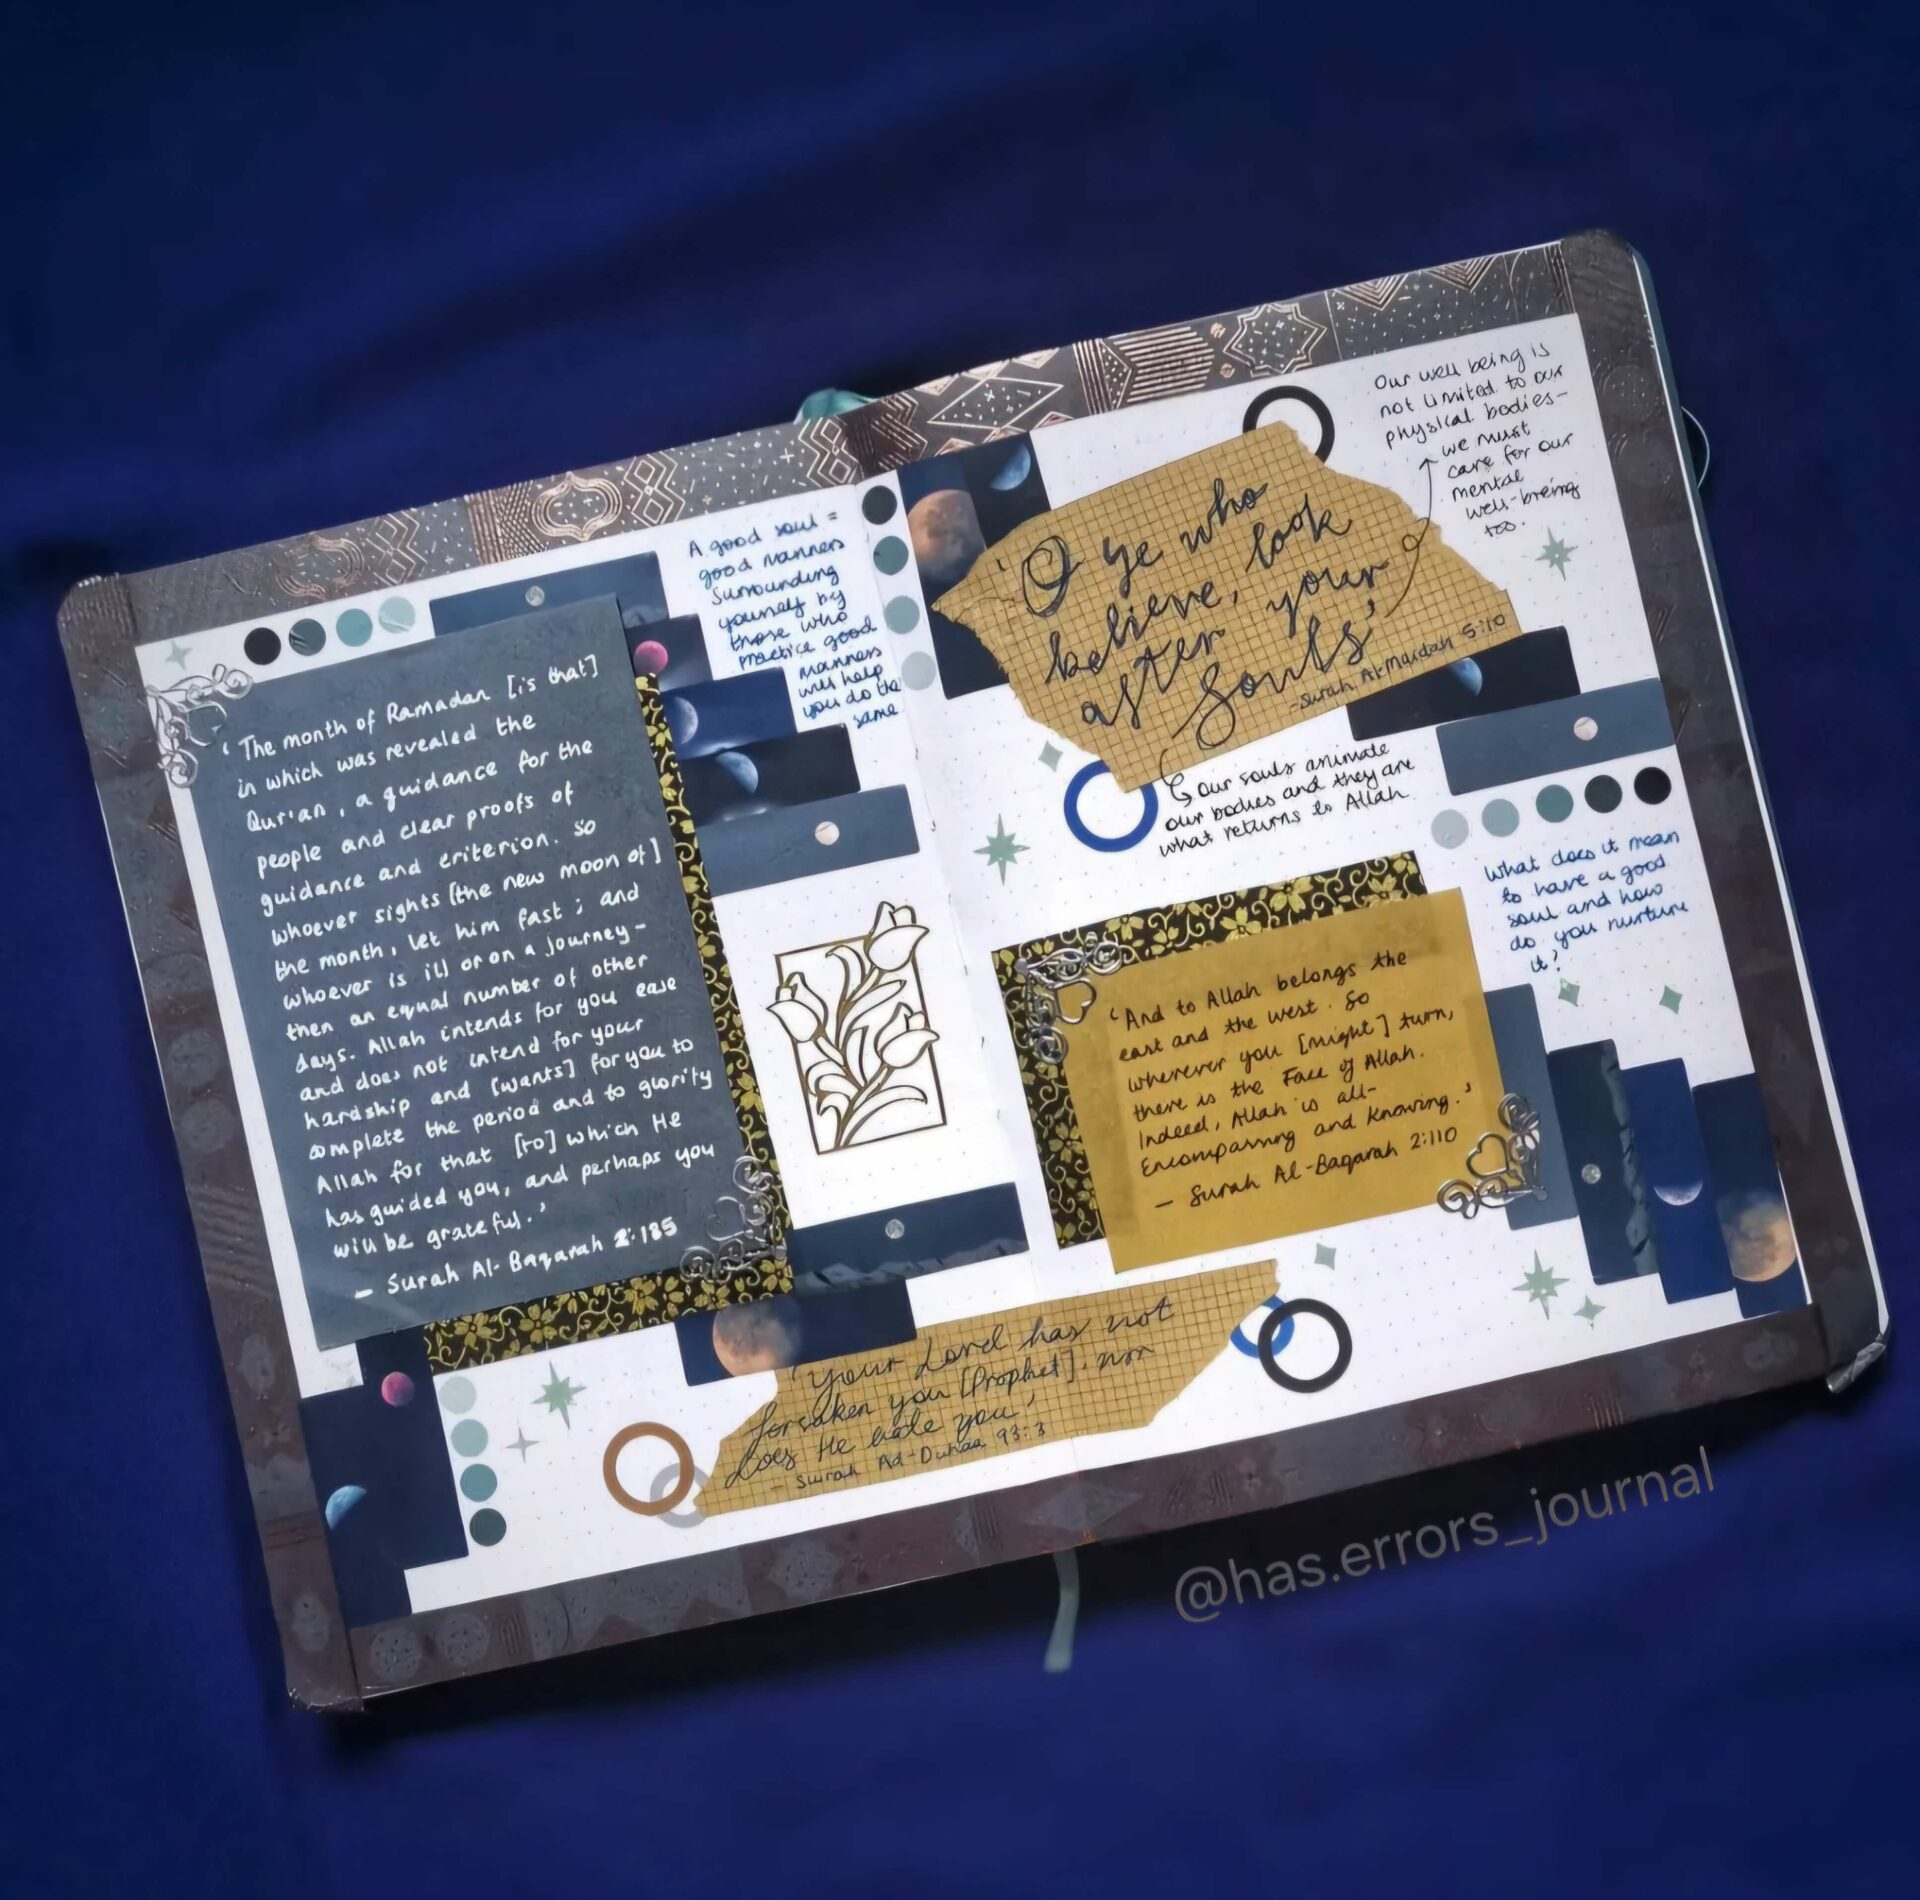 'The month of Ramadan [is that]
in which was revealed the
Qur'an, a guidance for the
people and clear proofs of
guidance and criterion. So
whoever sights [the new moon of]
the month, let him fast; and
whoever is ill or on a journey-
then an equal number of other
days. Allah intends for you ease
and does not intend for your
hardship and [wants] for you to
complete the period and to glorify
Allah for that [to] which He
has guided you, and perhaps you
will be grateful.'
- Surah Al-Baqarah 2:185
A good soul =
good manners
surrounding
yourself by
those who
practice good
manners
will help
you do the
same
'Your Lord has not
forsaken you [Prophet], nor
does He hate you'
- Surah Ad-Duhaa 93:3
'O ye who
believe, look
after your
souls'
- Surah Al-Maidah 5:10
Our well being is
not limited to our
physical bodies-
we must
care for our
mental
well-breing
too.
Our souls animate
our bodies and they are
what returns to Allah
What does it mean
to have a good
soul and how
do you nurture
it?
'And to Allah belongs the
east and the west. So
wherever you [might] turn,
there is the Face of Allah.
Indeed, Allah is all-
Encompassing and Knowing.'
- Surah Al-Baqarah 2:110
@has.errors_journal